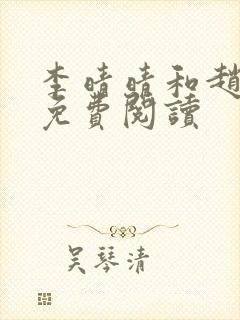 李晴晴和趙
免費閱讀
吴琴清